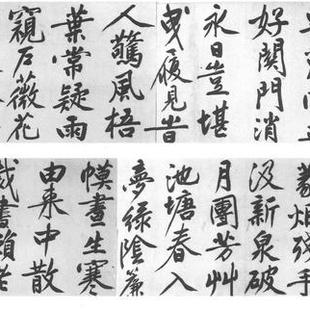 好閉門消
永日豈堪
曳履見旹
人驚風梧
葉常疑雨
窺戶薇花
篆烟殘手
汲新泉破
月團芳艸
池塘春入
夢綠陰簾
幙晝生寒
由來中散
書